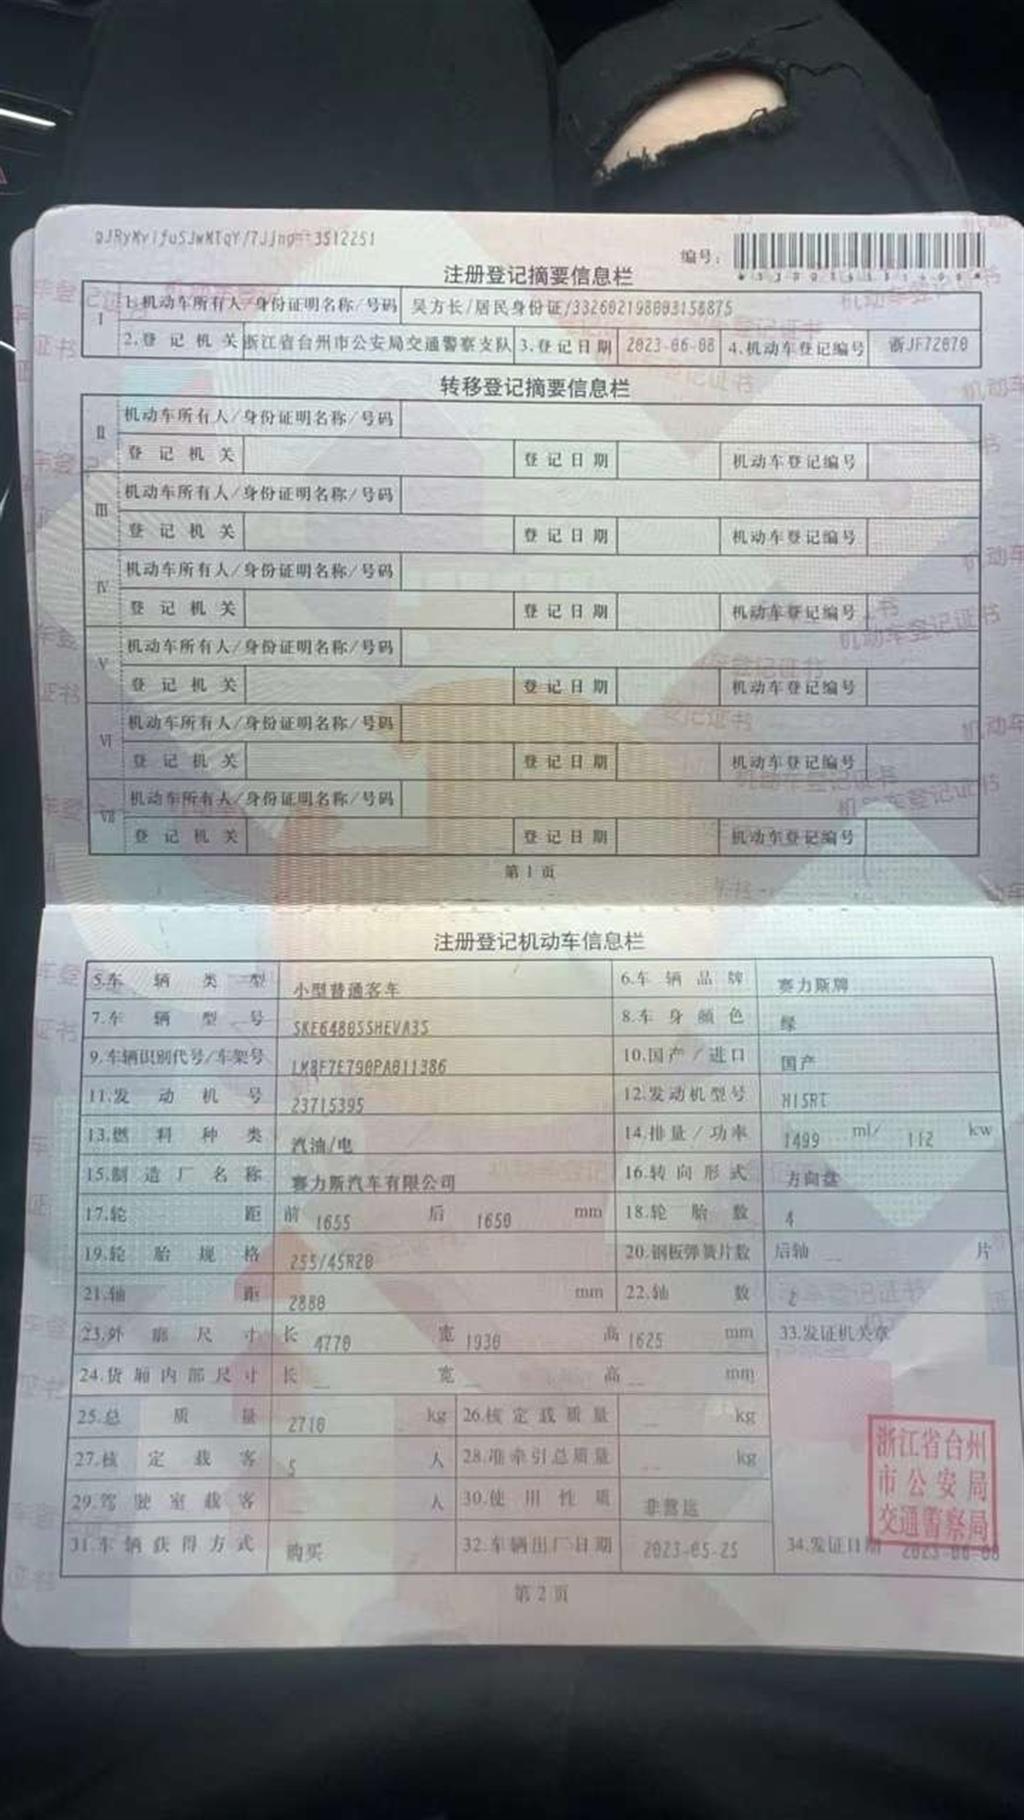 编号：
注册登记摘要信息栏
I
1.机动车所有人/身份证明名称/号码 吴方长/居民身份证/332602198003158875
2.登记机关 浙江省台州市公安局交通警察支队 3.登记日期 2023-06-08 4.机动车登记编号 浙JF72070
转移登记摘要信息栏
II
机动车所有人/身份证明名称/号码
登记机关 登记日期 机动车登记编号
III
机动车所有人/身份证明名称/号码
登记机关 登记日期 机动车登记编号
IV
机动车所有人/身份证明名称/号码
登记机关 登记日期 机动车登记编号
V
机动车所有人/身份证明名称/号码
登记机关 登记日期 机动车登记编号
VI
机动车所有人/身份证明名称/号码
登记机关 登记日期 机动车登记编号
VII
机动车所有人/身份证明名称/号码
登记机关 登记日期 机动车登记编号
第1页
注册登记机动车信息栏
5.车辆类型 小型普通客车 6.车辆品牌 赛力斯牌
7.车辆型号 SKE6480SSHEVA3S 8.车身颜色 绿
9.车辆识别代号/车架号 LM8F7E790PA011386 10.国产/进口 国产
11.发动机号 23715395 12.发动机型号 H15RT
13.燃料种类 汽油/电 14.排量/功率 1499 ml/ 112 kw
15.制造厂名称 赛力斯汽车有限公司 16.转向形式 方向盘
17.轮距 前 1655 后 1650 mm 18.轮胎数 4
19.轮胎规格 255/45R20 20.钢板弹簧片数 后轴 __ 片
21.轴距 2880 mm 22.轴数 2
23.外廓尺寸 长 4770 宽 1930 高 1625 mm 33.发证机关章
24.货厢内部尺寸 长 __ 宽 __ 高 __ mm
25.总质量 2710 kg 26.核定载质量 __ kg
27.核定载客 5 人 28.准牵引总质量 __ kg
29.驾驶室载客 __ 人 30.使用性质 非营运
31.车辆获得方式 购买 32.车辆出厂日期 2023-05-25 34.发证日期 2023-06-08
浙江省台州
市公安局
交通警察局
第2页